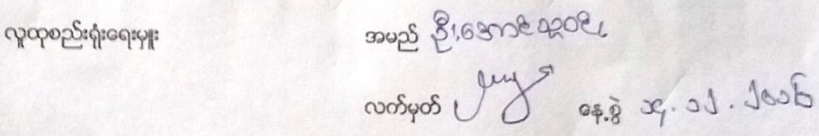 လူထုစည်းရုံးရေးမှူး အမည် ဦးအောင်သူဝင်း
လက်မှတ် နေ့စွဲ ၁၄.၁၂.၂၀၁၆